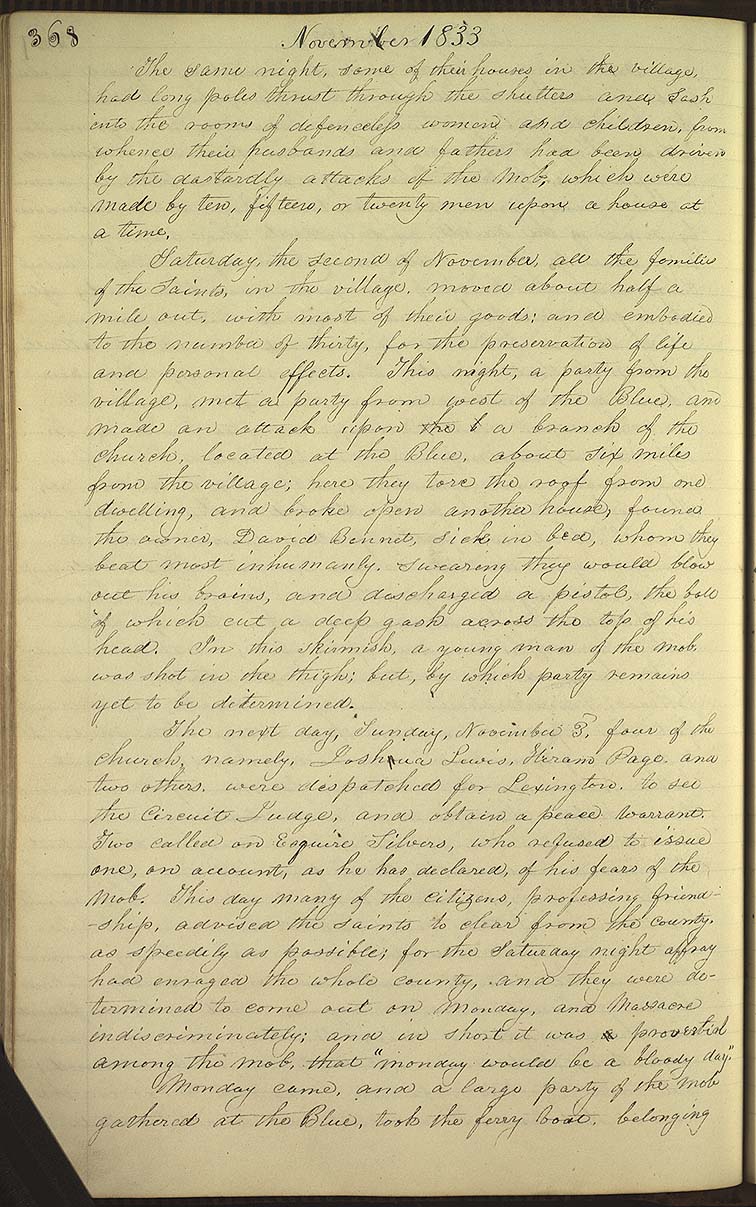 368
November 1833
The same night, some of their houses in the village,
had long poles thrust through the shutters and sash
into the rooms of defenceless women and children, from
whence their husbands and fathers had been driven
by the dastardly attacks of the mob, which were
made by ten, fifteen, or twenty men upon a house at
a time.
Saturday, the second of November, all the families
of the Saints, in the village, moved about half a
mile out, with most of their goods; and embodied
to the number of thirty, for the preservation of life
and personal effects. This night, a party from the
village, met a party from west of the Blue, and
made an attack upon the b a branch of the
church, located at the Blue, about six miles
from the village; here they tore the roof from one
dwelling, and broke open another house, found
the owner, David Bennet, sick in bed, whom they
beat most inhumanly, swearing they would blow
out his brains, and discharged a pistol, the ball
of which cut a deep gash across the top of his
head. In this skirmish, a young man of the mob,
was shot in the thigh; but, by which party remains
yet to be determined.
The next day, Sunday, November 3, four of the
church, namely, Joshua Lewis, Hiram Page, and
two others, were despatched for Lexington, to see
the Circuit Judge, and obtain a peace warrant.
Two called on Esquire Silvers, who refused to issue
one, on account, as he has declared, of his fears of the
mob. This day many of the citizens, professing friend-
-ship, advised the saints to clear from the county,
as speedily as possible; for the Saturday night affray
had enraged the whole county, and they were de-
termined to come out on Monday, and Massacre
indiscriminately; and in short it was a proverbial
among the mob, that "monday would be a bloody day."
Monday came, and a large party of the mob
gathered at the Blue, took the ferry boat, belonging